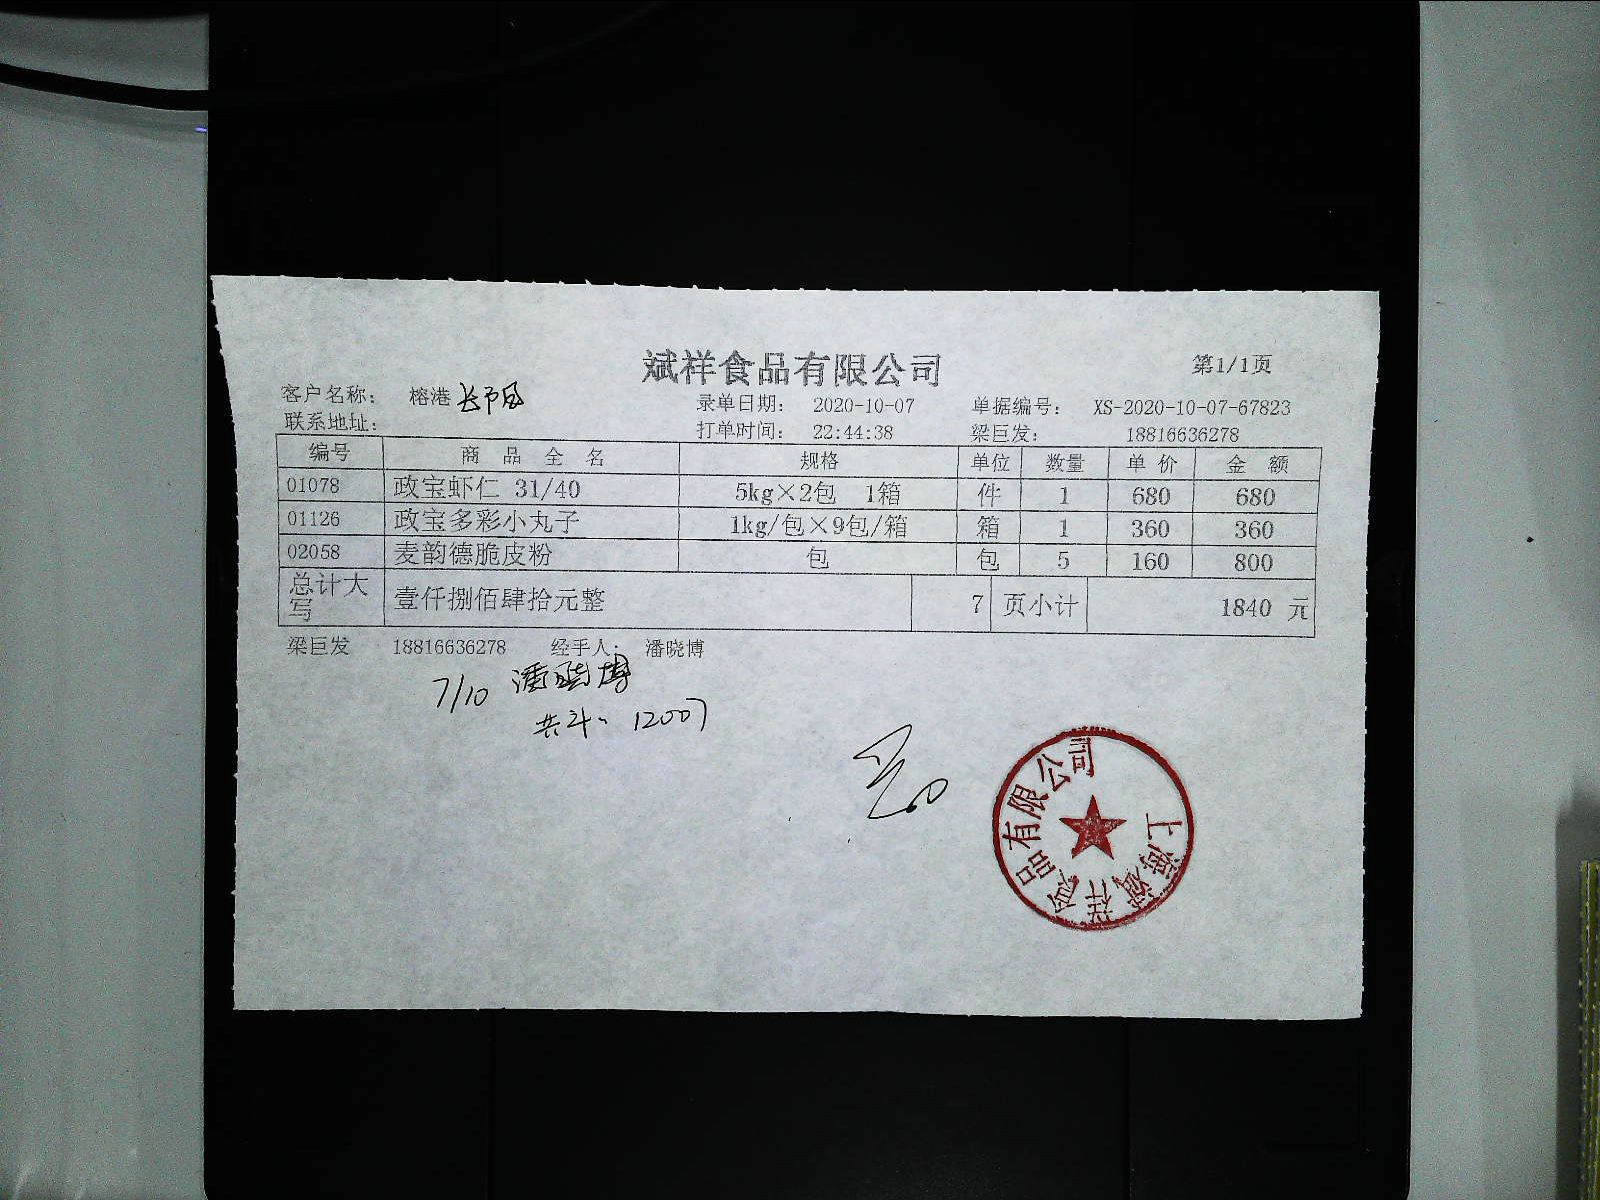 斌祥食品有限公司
第1/1页
客户名称： 榕港
录单日期： 2020-10-07 单据编号： XS-2020-10-07-67823
联系地址：
打单时间： 22:44:38 梁巨发： 18816636278
编号 商 品 全 名 规格 单位 数量 单 价 金 额
01078 政宝虾仁 31/40 5kg×2包 1箱 件 1 680 680
01126 政宝多彩小丸子 1kg/包×9包/箱 箱 1 360 360
02058 麦韵德脆皮粉 包 包 5 160 800
总计大写 壹仟捌佰肆拾元整 7 页小计 1840 元
梁巨发 18816636278 经手人： 潘晓博
7/10 潘晓博
上海斌祥食品有限公司